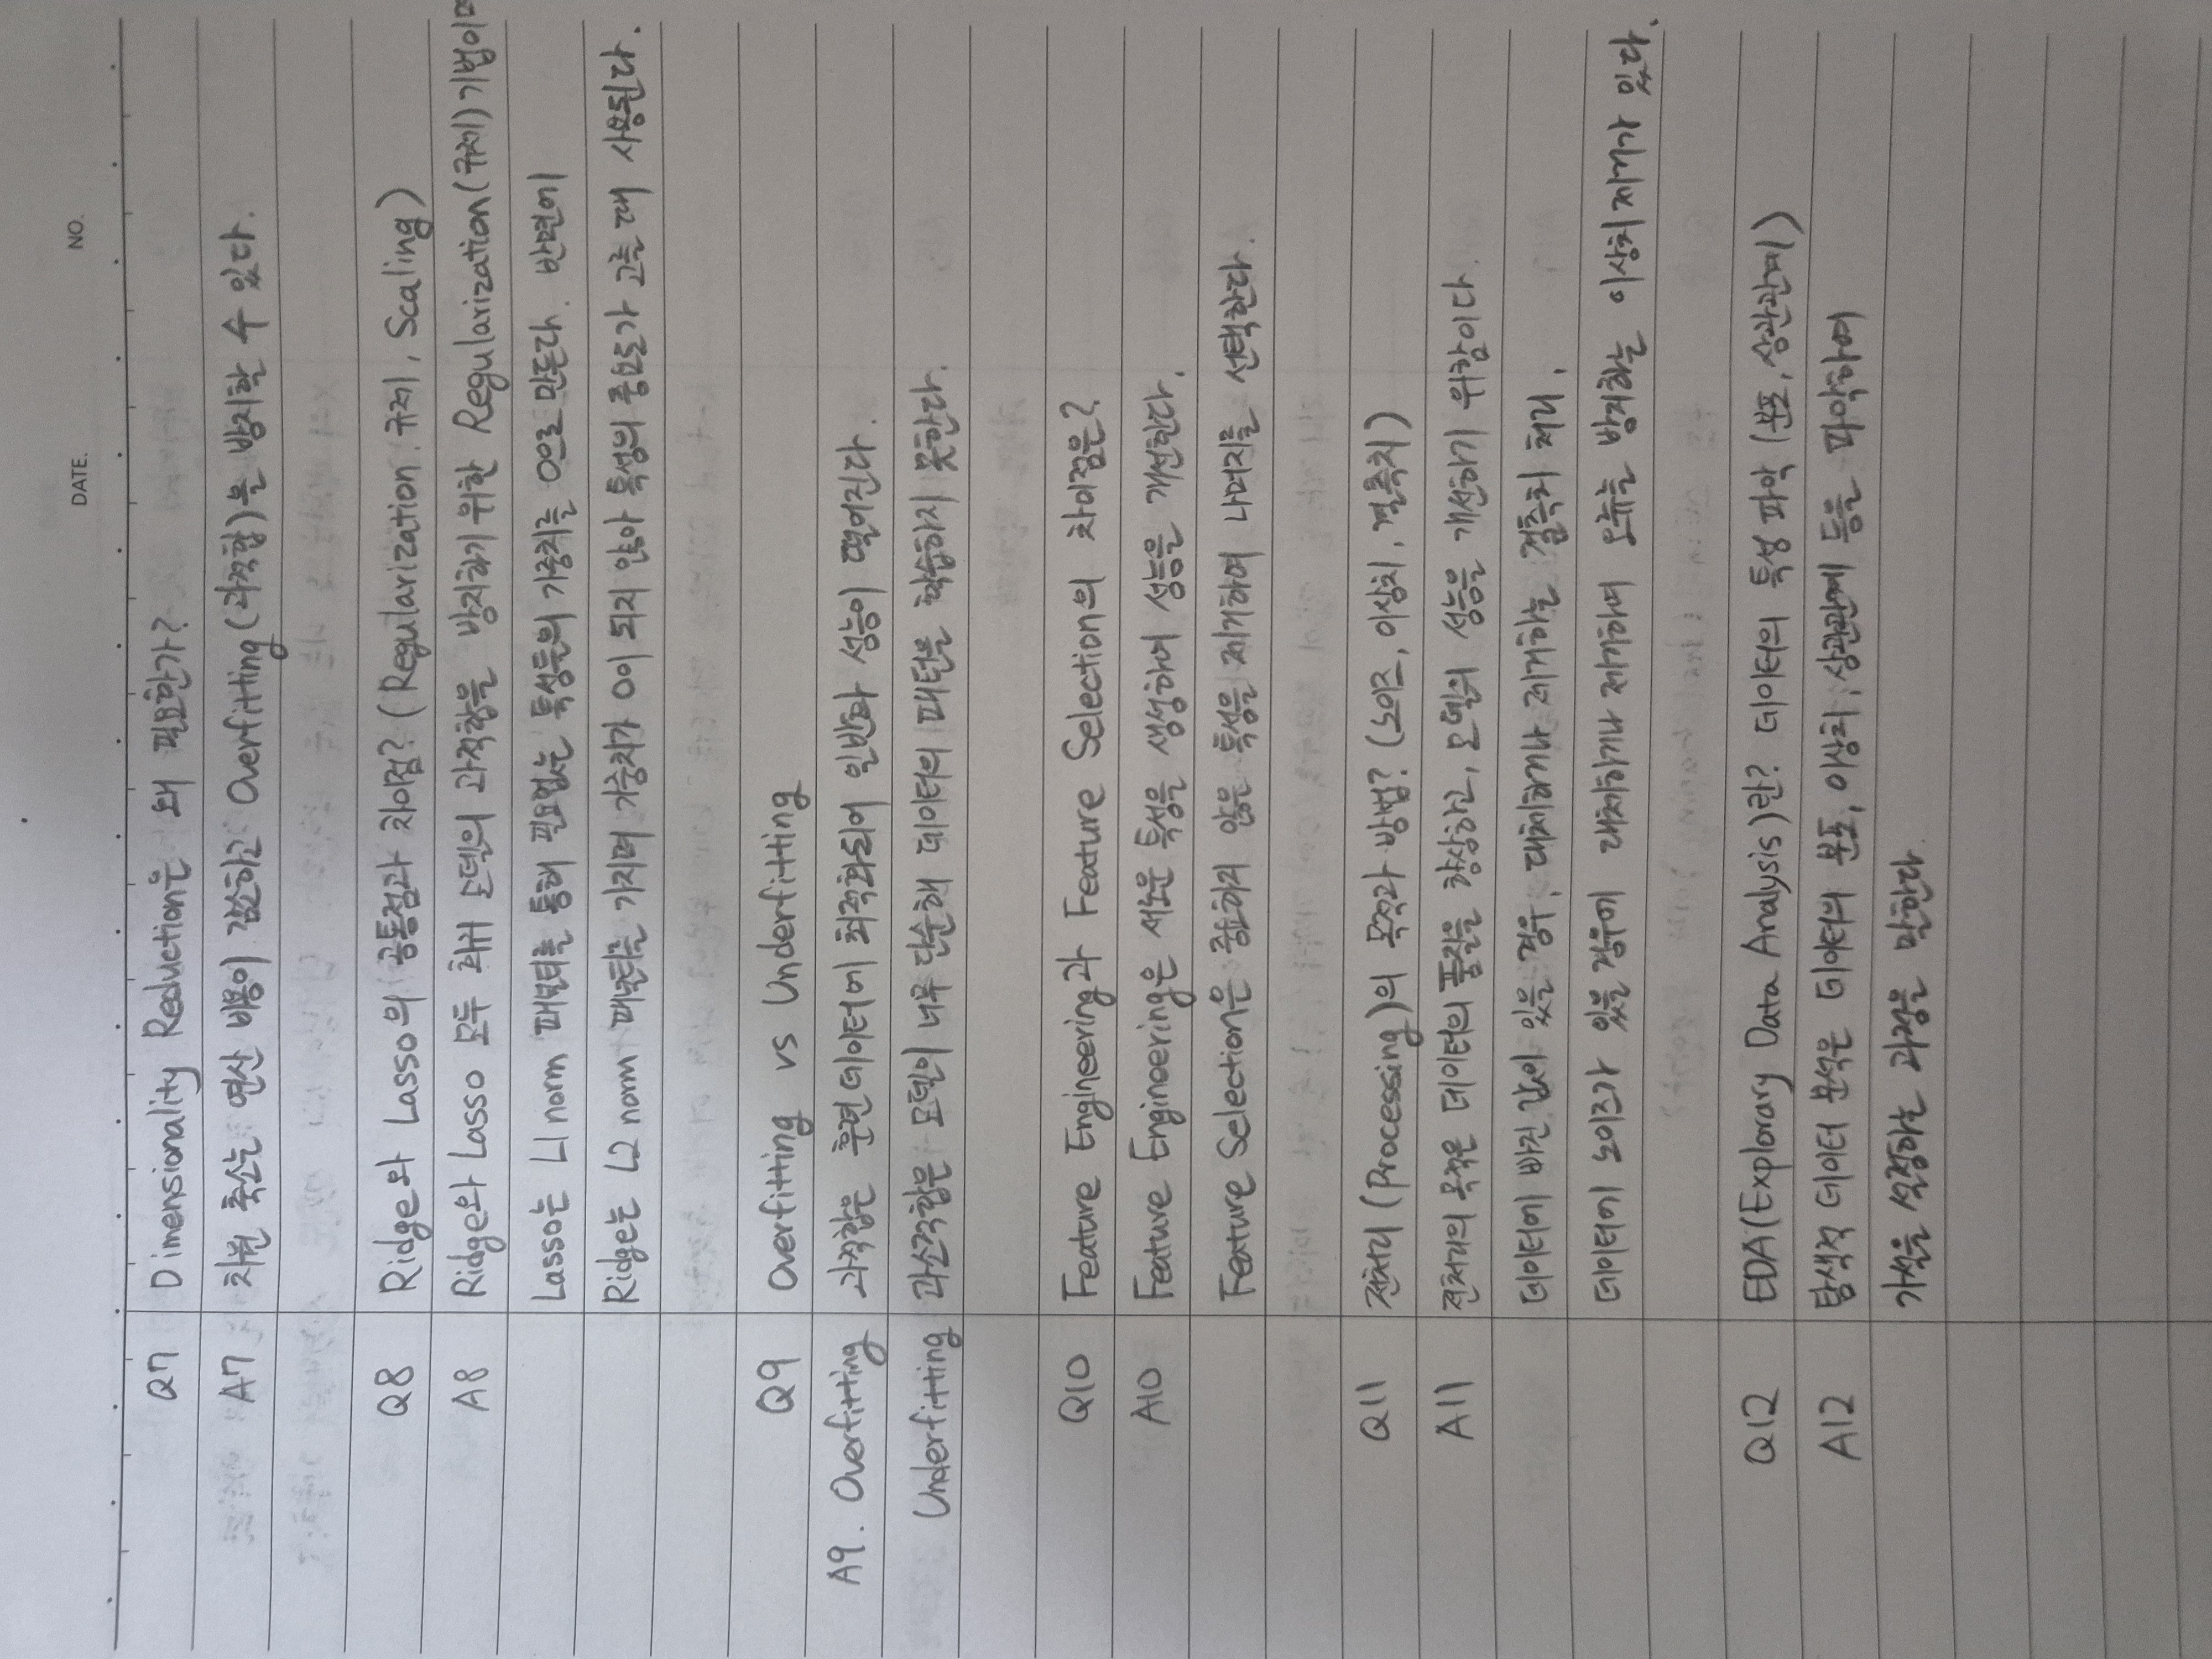 DATE. NO.
Q7 Dimensionality Reduction은 왜 필요한가?
A7 차원 축소는 연산 비용이 감소하고 Overfitting(과적합)을 방지할 수 있다.
Q8 Ridge와 Lasso의 공통점과 차이점? (Regularization. 규제, Scaling)
A8 Ridge와 Lasso 모두 회귀 모델의 과적합을 방지하기 위한 Regularization(규제) 기법이며
Lasso는 L1 norm 패널티를 통해 필요없는 특성들의 가중치를 0으로 만든다. 반면에
Ridge는 L2 norm 패널티를 가지며 가중치가 0이 되지 않아 특성의 중요도가 고를 때 사용된다.
Q9 Overfitting vs Underfitting
A9. Overfitting 과적합은 훈련 데이터에 최적화되어 일반화 성능이 떨어진다.
Underfitting 과소적합은 모델이 너무 단순해 데이터의 패턴을 학습하지 못한다.
Q10 Feature Engineering과 Feature Selection의 차이점은?
A10 Feature Engineering은 새로운 특성을 생성하여 성능을 개선한다.
Feature Selection은 중요하지 않은 특성을 제거하여 나머지를 선택한다.
Q11 전처리 (Processing)의 목적과 방법? (노이즈, 이상치, 결측치)
A11 전처리의 목적은 데이터의 품질을 향상하고, 모델의 성능을 개선하기 위함이다.
데이터에 빠진 값이 있을 경우, 대체하거나 제거하는 결측치 처리,
데이터에 노이즈가 있을 경우에 대체하거나 제거하며 오류를 방지하는 이상치 제거가 있다.
Q12 EDA(Explorary Data Analysis)란? 데이터의 특성 파악 (분포, 상관관계)
A12 탐색적 데이터 분석은 데이터의 분포, 이상치, 상관관계 등을 파악하여
가설을 설정하는 과정을 말한다.